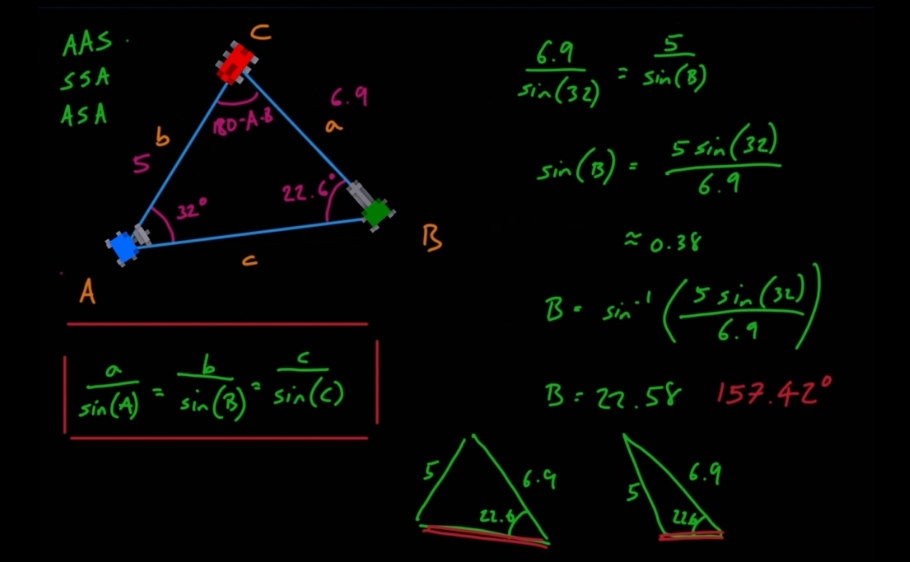 AAS
SSA
ASA
C
b
5
180-A-B
6.9
a
32°
22.6°
A
c
B
a/sin(A) = b/sin(B) = c/sin(C)
6.9/sin(32) = 5/sin(B)
sin(B) = 5 sin(32)/6.9
≈ 0.38
B = sin⁻¹(5 sin(32)/6.9)
B = 22.58 157.42°
5
6.9
22.6
5
6.9
22.6